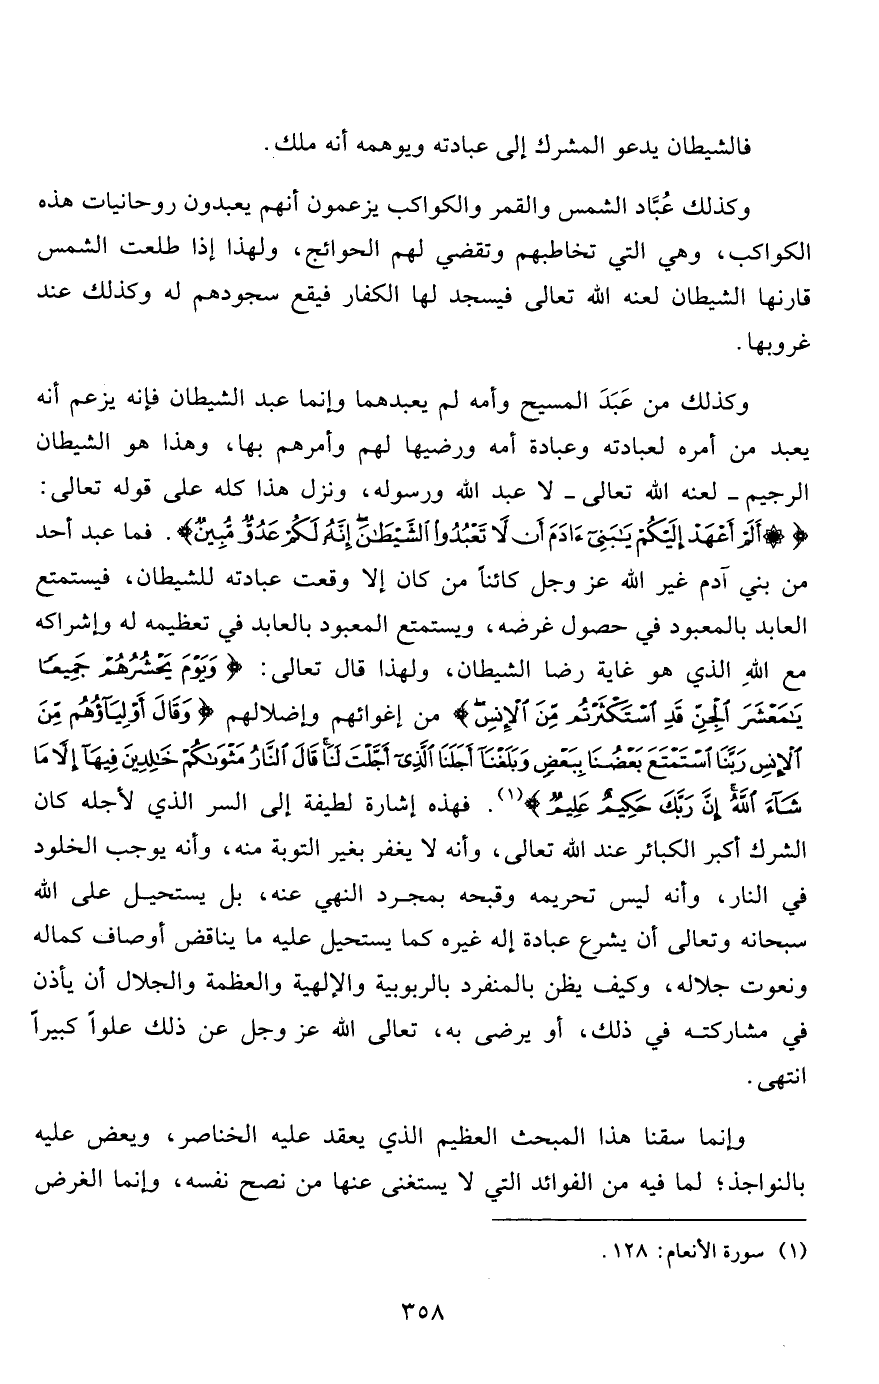 فالشيطان يدعو المشرك إلى عبادته ويوهمه أنه ملك.
وكذلك عُبَّاد الشمس والقمر والكواكب يزعمون أنهم يعبدون روحانيات هذه
الكواكب، وهي التي تخاطبهم وتقضي لهم الحوائج، ولهذا إذا طلعت الشمس
قارنها الشيطان لعنه الله تعالى فيسجد لها الكفار فيقع سجودهم له وكذلك عند
غروبها.
وكذلك من عَبَدَ المسيح وأمه لم يعبدهما وإنما عبد الشيطان فإنه يزعم أنه
يعبد من أمره لعبادته وعبادة أمه ورضيها لهم وأمرهم بها، وهذا هو الشيطان
الرجيم - لعنه الله تعالى - لا عبد الله ورسوله، ونزل هذا كله على قوله تعالى:
﴿ ۞ أَلَمْ أَعْهَدْ إِلَيْكُمْ يَٰبَنِىٓ ءَادَمَ أَن لَّا تَعْبُدُوا۟ ٱلشَّيْطَٰنَ ۖ إِنَّهُۥ لَكُمْ عَدُوٌّ مُّبِينٌ ﴾. فما عبد أحد
من بني آدم غير الله عز وجل كائناً من كان إلا وقعت عبادته للشيطان، فيستمتع
العابد بالمعبود في حصول غرضه، ويستمتع المعبود بالعابد في تعظيمه له وإشراكه
مع اللهِ الذي هو غاية رضا الشيطان، ولهذا قال تعالى: ﴿ وَيَوْمَ يَحْشُرُهُمْ جَمِيعًا
يَٰمَعْشَرَ ٱلْجِنِّ قَدِ ٱسْتَكْثَرْتُم مِّنَ ٱلْإِنسِ ۖ ﴾ من إغوائهم وإضلالهم ﴿ وَقَالَ أَوْلِيَآؤُهُم مِّنَ
ٱلْإِنسِ رَبَّنَا ٱسْتَمْتَعَ بَعْضُنَا بِبَعْضٍ وَبَلَغْنَآ أَجَلَنَا ٱلَّذِىٓ أَجَّلْتَ لَنَا ۚ قَالَ ٱلنَّارُ مَثْوَىٰكُمْ خَٰلِدِينَ فِيهَآ إِلَّا مَا
شَآءَ ٱللَّهُ ۗ إِنَّ رَبَّكَ حَكِيمٌ عَلِيمٌ ﴾(١). فهذه إشارة لطيفة إلى السر الذي لأجله كان
الشرك أكبر الكبائر عند الله تعالى، وأنه لا يغفر بغير التوبة منه، وأنه يوجب الخلود
في النار، وأنه ليس تحريمه وقبحه بمجرد النهي عنه، بل يستحيل على الله
سبحانه وتعالى أن يشرع عبادة إله غيره كما يستحيل عليه ما يناقض أوصاف كماله
ونعوت جلاله، وكيف يظن بالمنفرد بالربوبية والإلهية والعظمة والجلال أن يأذن
في مشاركته في ذلك، أو يرضى به، تعالى الله عز وجل عن ذلك علواً كبيراً
انتهى.
وإنما سقنا هذا المبحث العظيم الذي يعقد عليه الخناصر، ويعض عليه
بالنواجذ؛ لما فيه من الفوائد التي لا يستغنى عنها من نصح نفسه، وإنما الغرض
(١) سورة الأنعام: ١٢٨.
٣٥٨